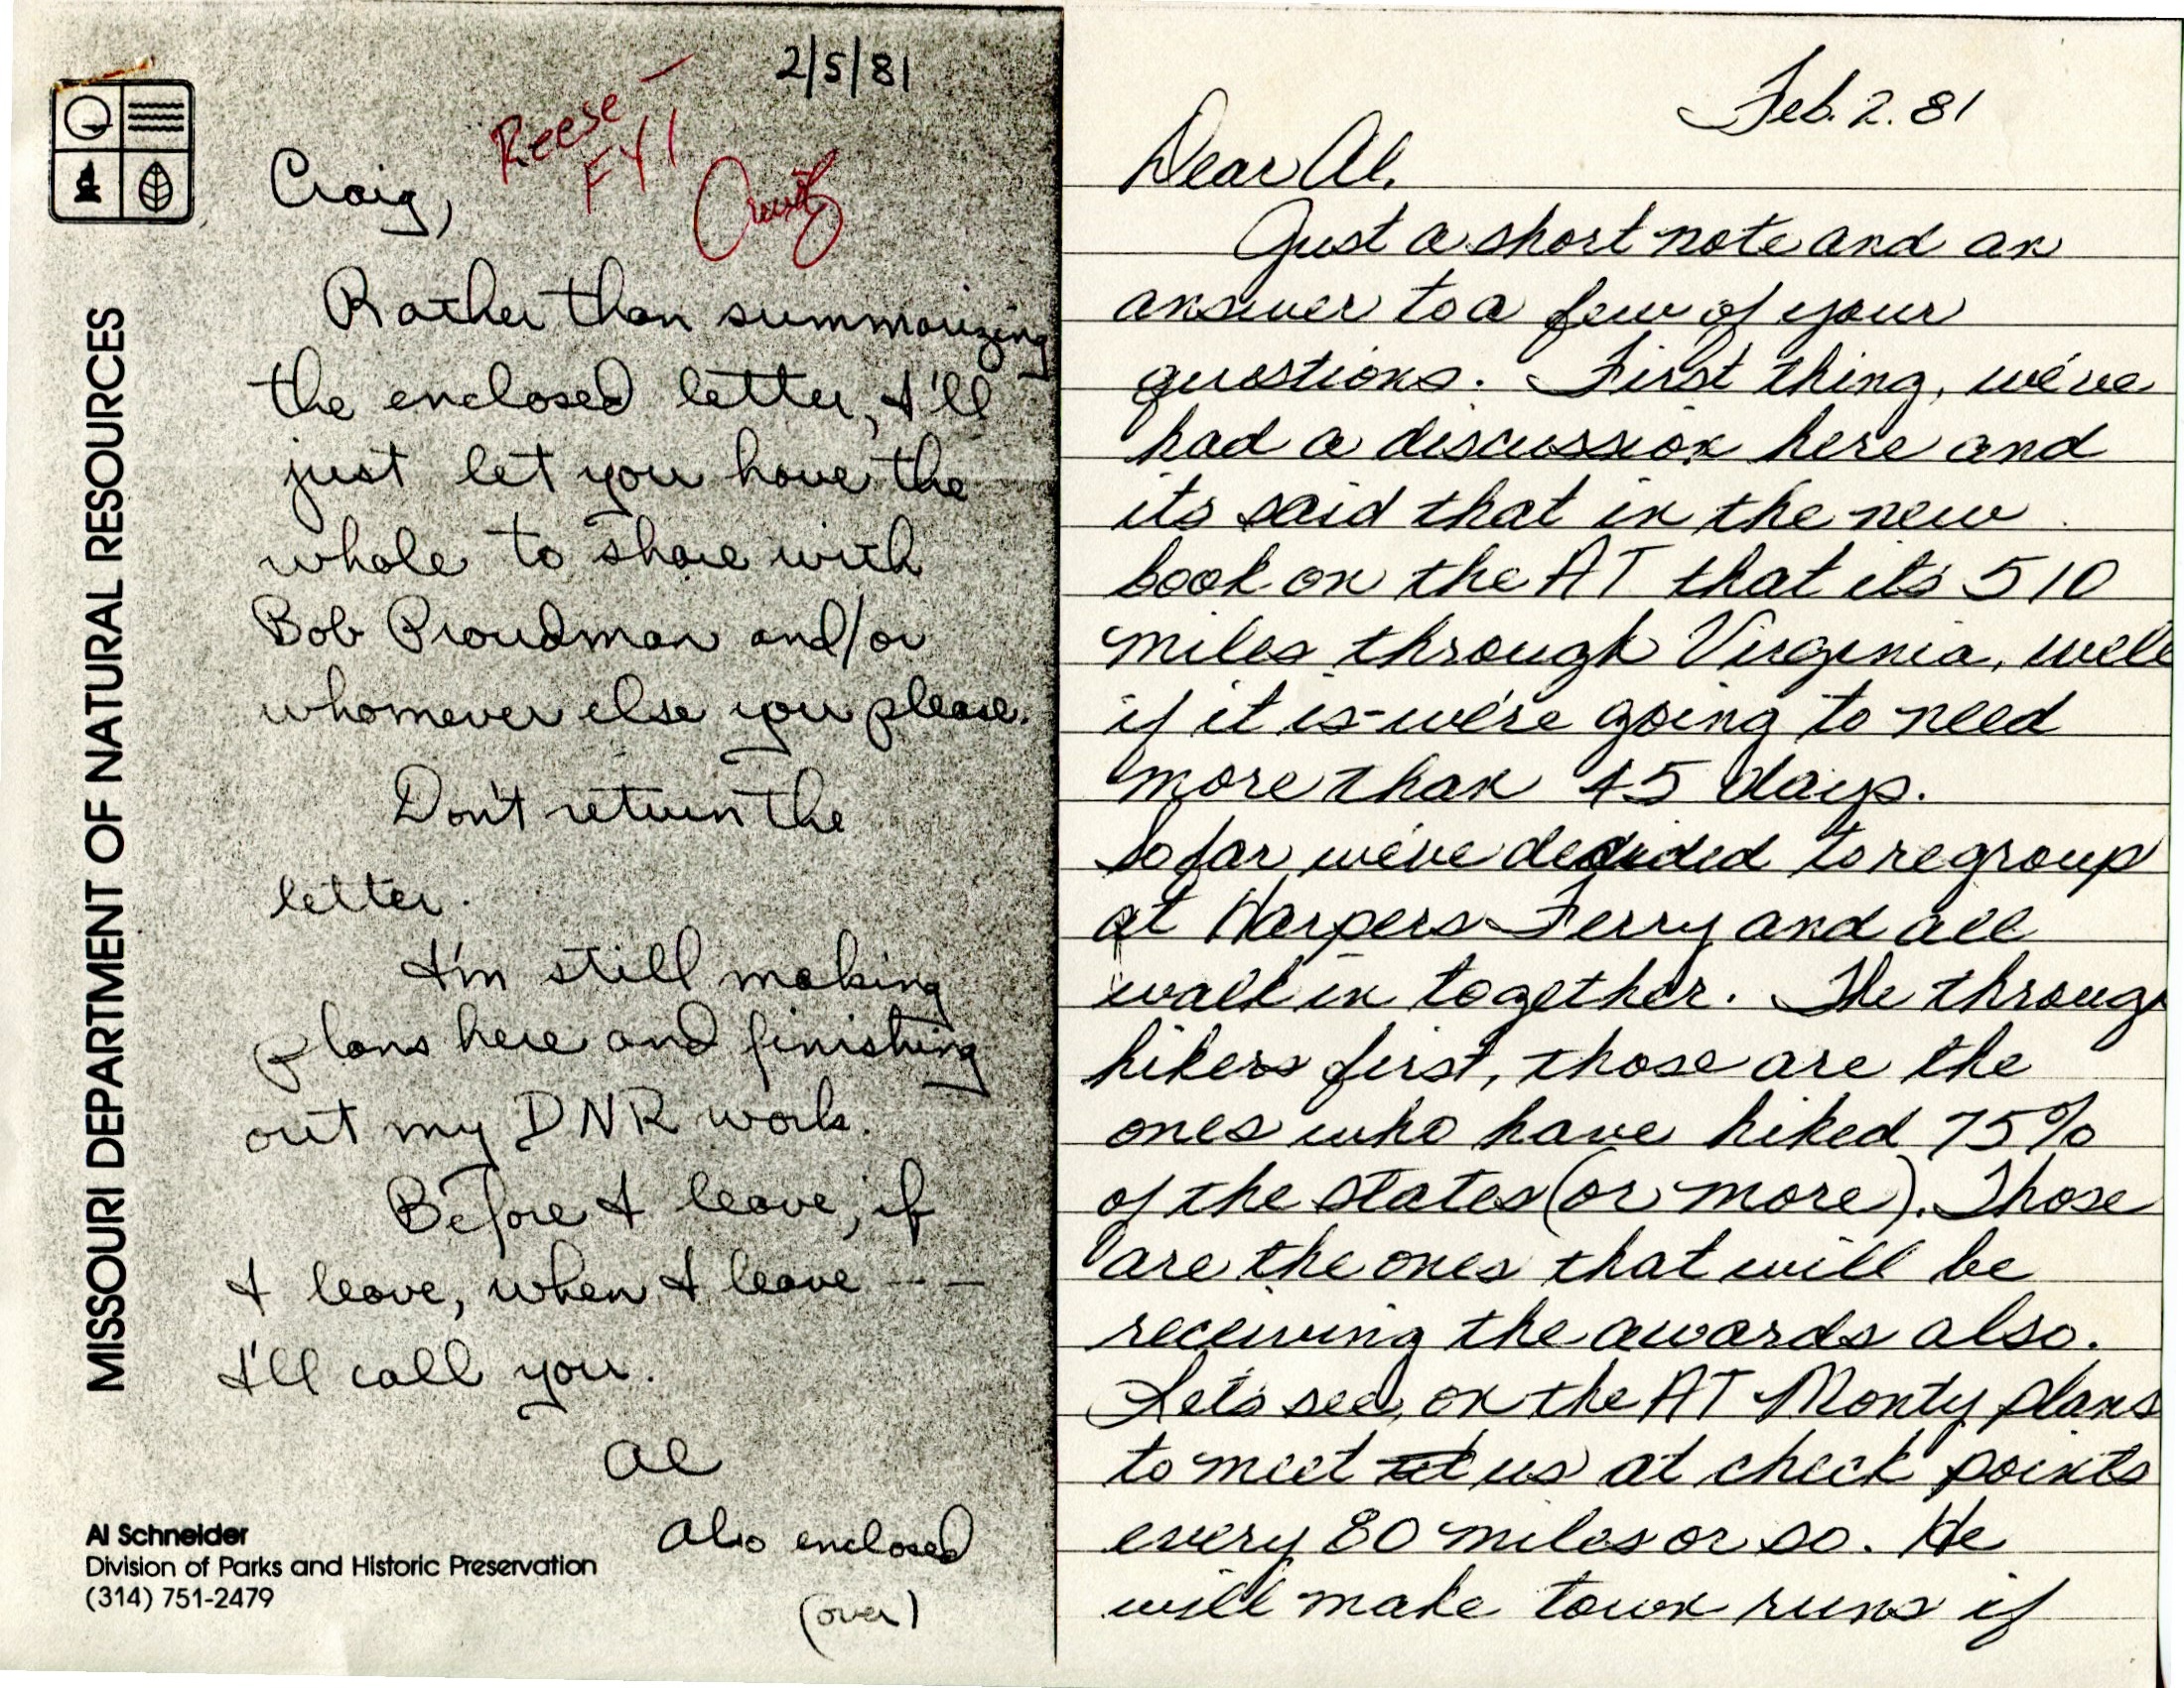 2/5/81
Reese –
FYI
Craig,
Rather than summarizing
the enclosed letter, I'll
just let you have the
whole to share with
Bob Proudman and/or
whomever else you please.
Don't return the
letter.
I'm still making
plans here and finishing
out my DNR work.
Before I leave, if
I leave, when I leave ---
I'll call you.
Al
Also enclosed
(over)
MISSOURI DEPARTMENT OF NATURAL RESOURCES
Al Schneider
Division of Parks and Historic Preservation
(314) 751-2479
Feb. 2. 81
Dear Al,
Just a short note and an
answer to a few of your
questions. First thing, we've
had a discussion here and
its said that in the new
book on the AT that its 510
miles through Virginia, well
if it is - we're going to need
more than 45 days.
So far we've decided to regroup
at Harpers Ferry and all
walk in together. The throug
hikers first, those are the
ones who have hiked 75%
of the states (or more). Those
are the ones that will be
receiving the awards also.
Let's see, on the AT Monty plans
to meet at us at check points
every 80 miles or so. He
will make town runs if